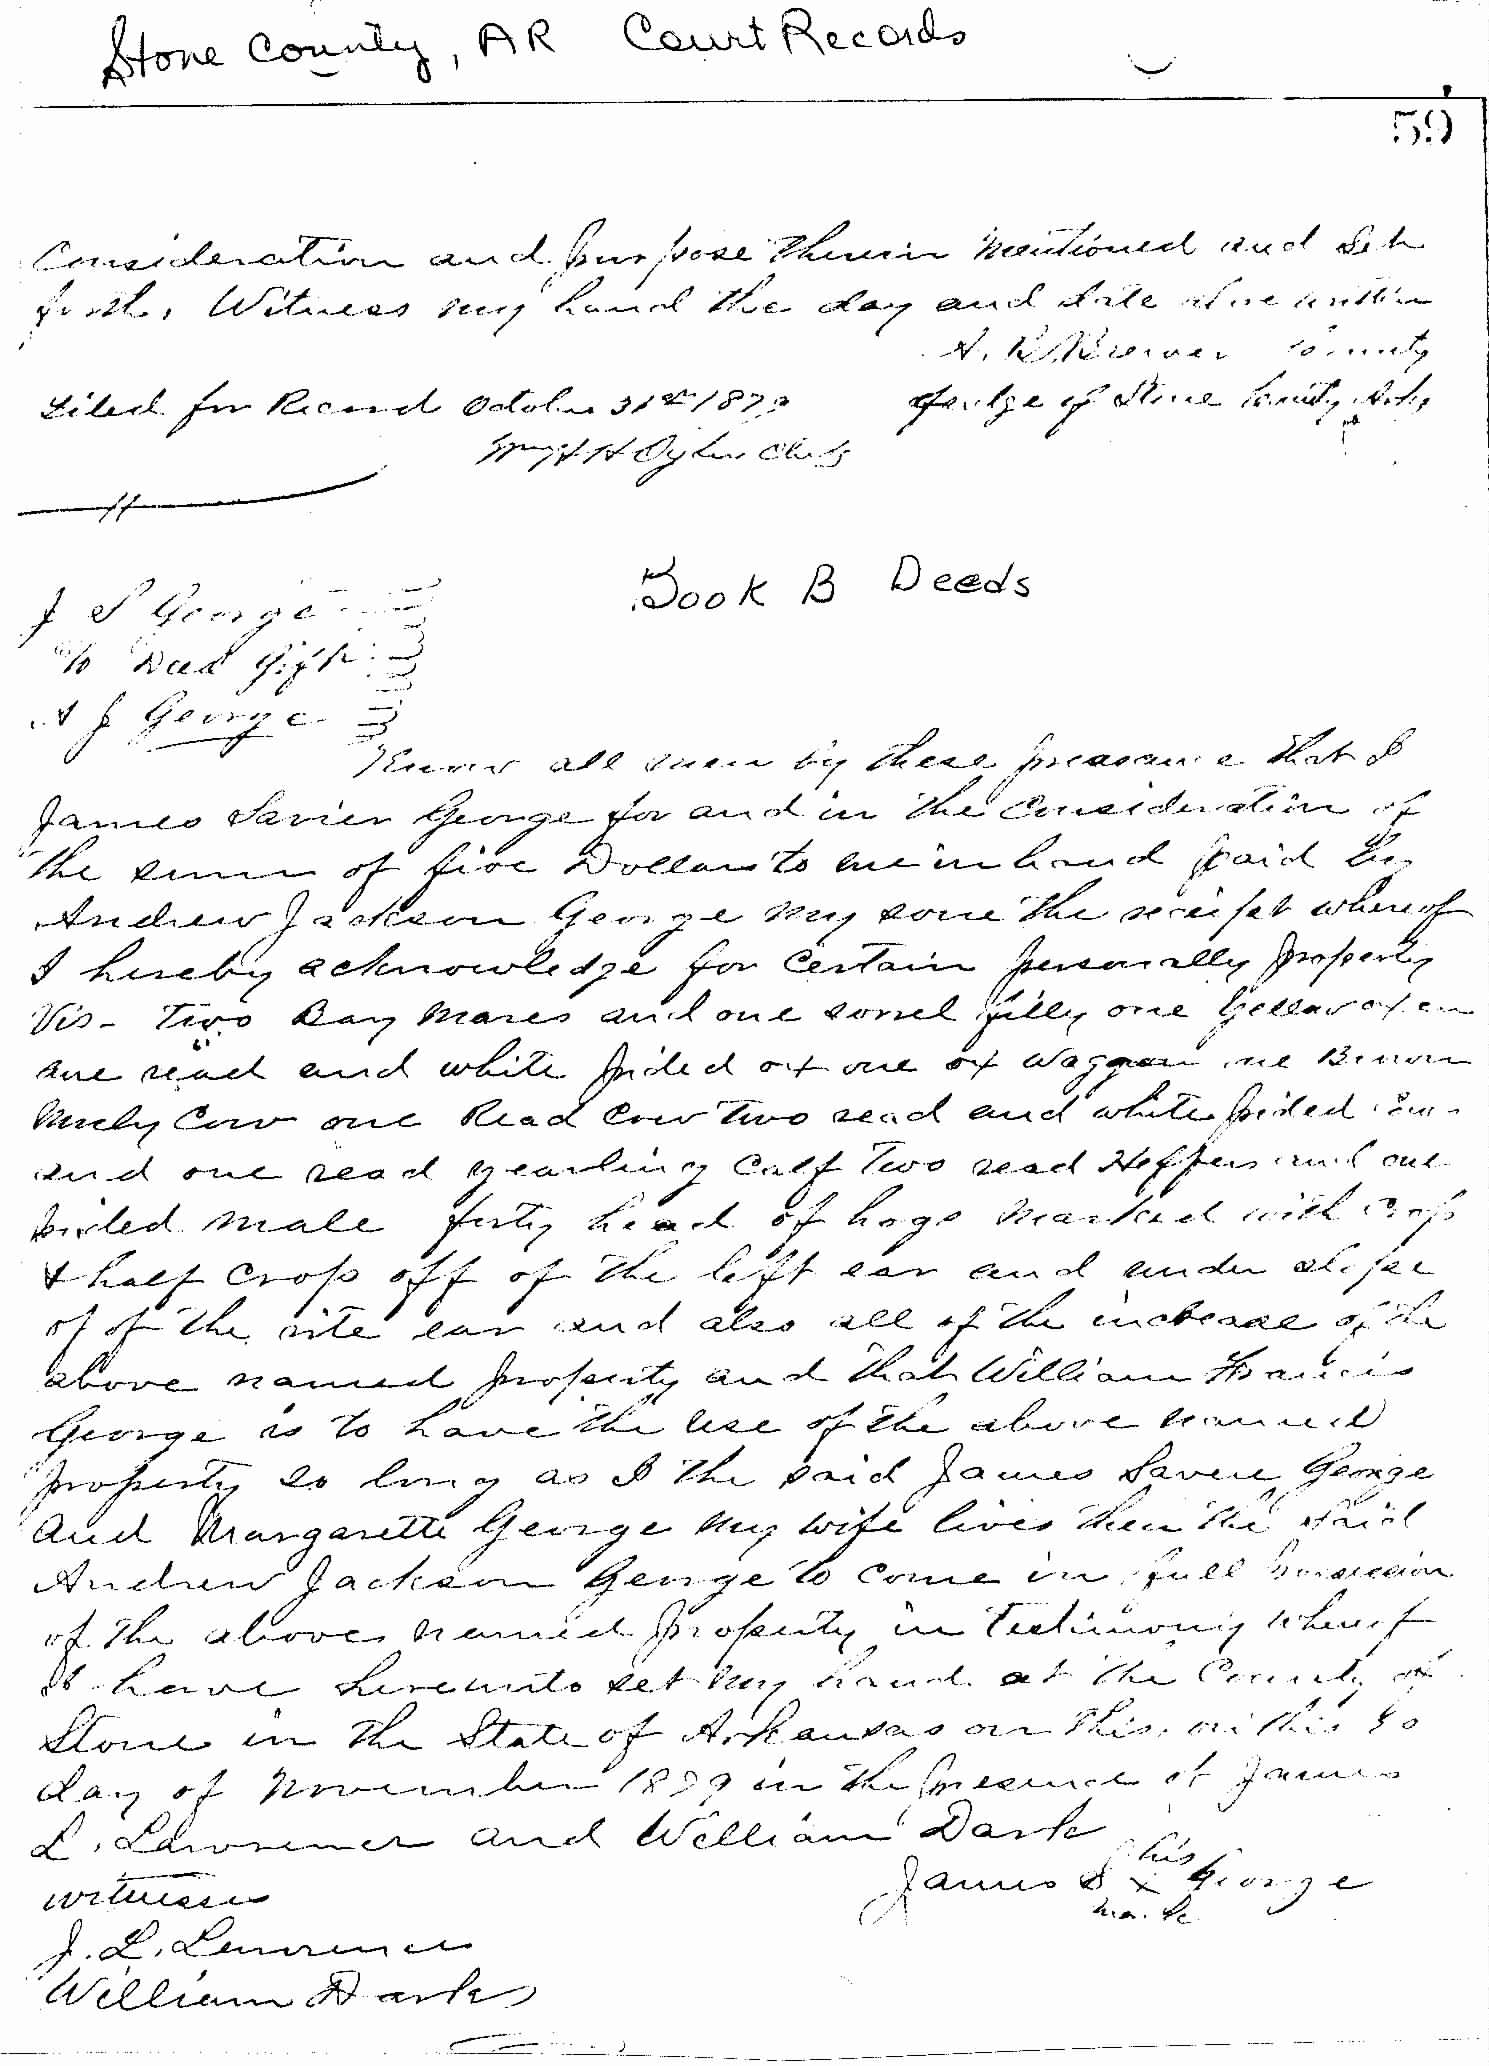 Stone County, AR Court Records
59
Consideration and purpose therein mentioned and Set
forth, Witness my hand the day and date above written
A. B. Brewer County
Judge of Stone County Arks
Filed for Record October 31st 1879
H Clerk
Book B Deeds
J S George
to Deed Gift
A J George
Know all men by these that I
James Savier George for and in the Consideration of
the sum of five Dollars to me in hand paid by
Andrew Jackson George my sone the receipt whereof
I hereby acknowledge for Certain personally property
Vis - Two Bay Mares and one sorrel filly one Yellow oxen
one read and white pided ox one ox Waggon one Brown
Cow one Read Cow Two read and white pided Cows
and one read yearling Calf Two read Heffers and one
pided male forty head of hogs Marked with Crop
& half Crop off of the left ear and under slope
of of the rite ear and also all of the increase of the
above named property and that William Francis
George is to have the use of the above named
property so long as I the said James Savere George
and Margarette George my wife lives then the said
Andrew Jackson George to Come in full
of the above named property in Testimony whereof
I have hereunto set my hand at the County of
Stone in the State of Arkansas on this on this
day of November 1879 in the presence of James
L. Lawrence and William Dark
his
James S x George
mark
witnesses
J. L. Lawrence
William Darks